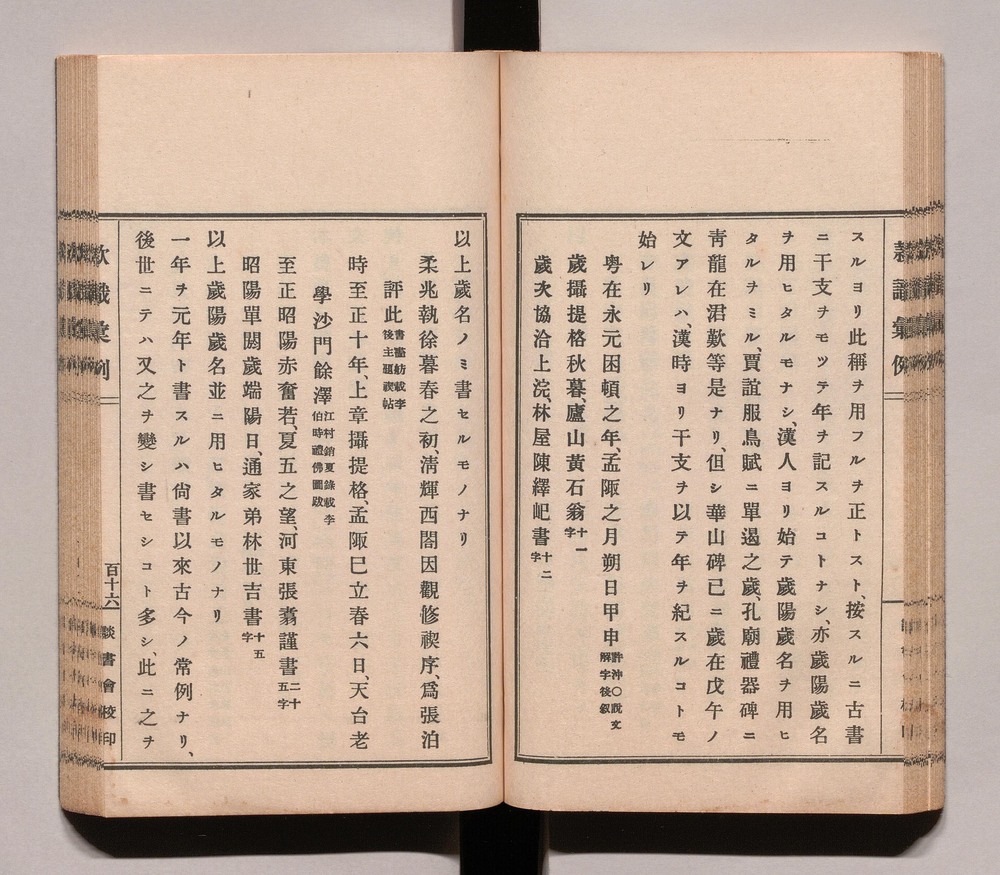 スルヨリ此稱ヲ用フルヲ正トスト、按スルニ古書
ニ干支ヲモツテ年ヲ記スルコトナシ、亦歲陽歲名
ヲ用ヒタルモナシ、漢人ヨリ始テ歲陽歲名ヲ用ヒ
タルヲミル、賈誼服鳥賦ニ單遏之歲、孔廟禮器碑ニ
靑龍在君歎等是ナリ、但シ華山碑已ニ歲在戊午ノ
文アレハ、漢時ヨリ干支ヲ以テ年ヲ紀スルコトモ
始レリ
粵在永元困頓之年、孟陬之月朔日甲申許沖〇說文解字後叙
歲攝提格秋暮、廬山黃石翁十一字
歲次協洽上浣、林屋陳繹屺書十二字
以上歲名ノミ書セルモノナリ
柔兆執徐暮春之初、淸輝西閣因觀修禊序、爲張泊
評此書畫舫載李後主題禊帖
時至正十年、上章攝提格、孟陬巳立春六日、天台老
學沙門餘澤江村銷夏錄載李伯時禮佛圖跋
至正昭陽赤奮若、夏五之望、河東張翥謹書二十五字
昭陽單閼歲端陽日、通家弟林世吉書十五字
以上歲陽歲名並ニ用ヒタルモノナリ
一年ヲ元年ト書スルハ尙書以來古今ノ常例ナリ、
後世ニテハ又之ヲ變シ書セシコト多シ、此ニ之ヲ
款識彙例
百十六
談書會校印